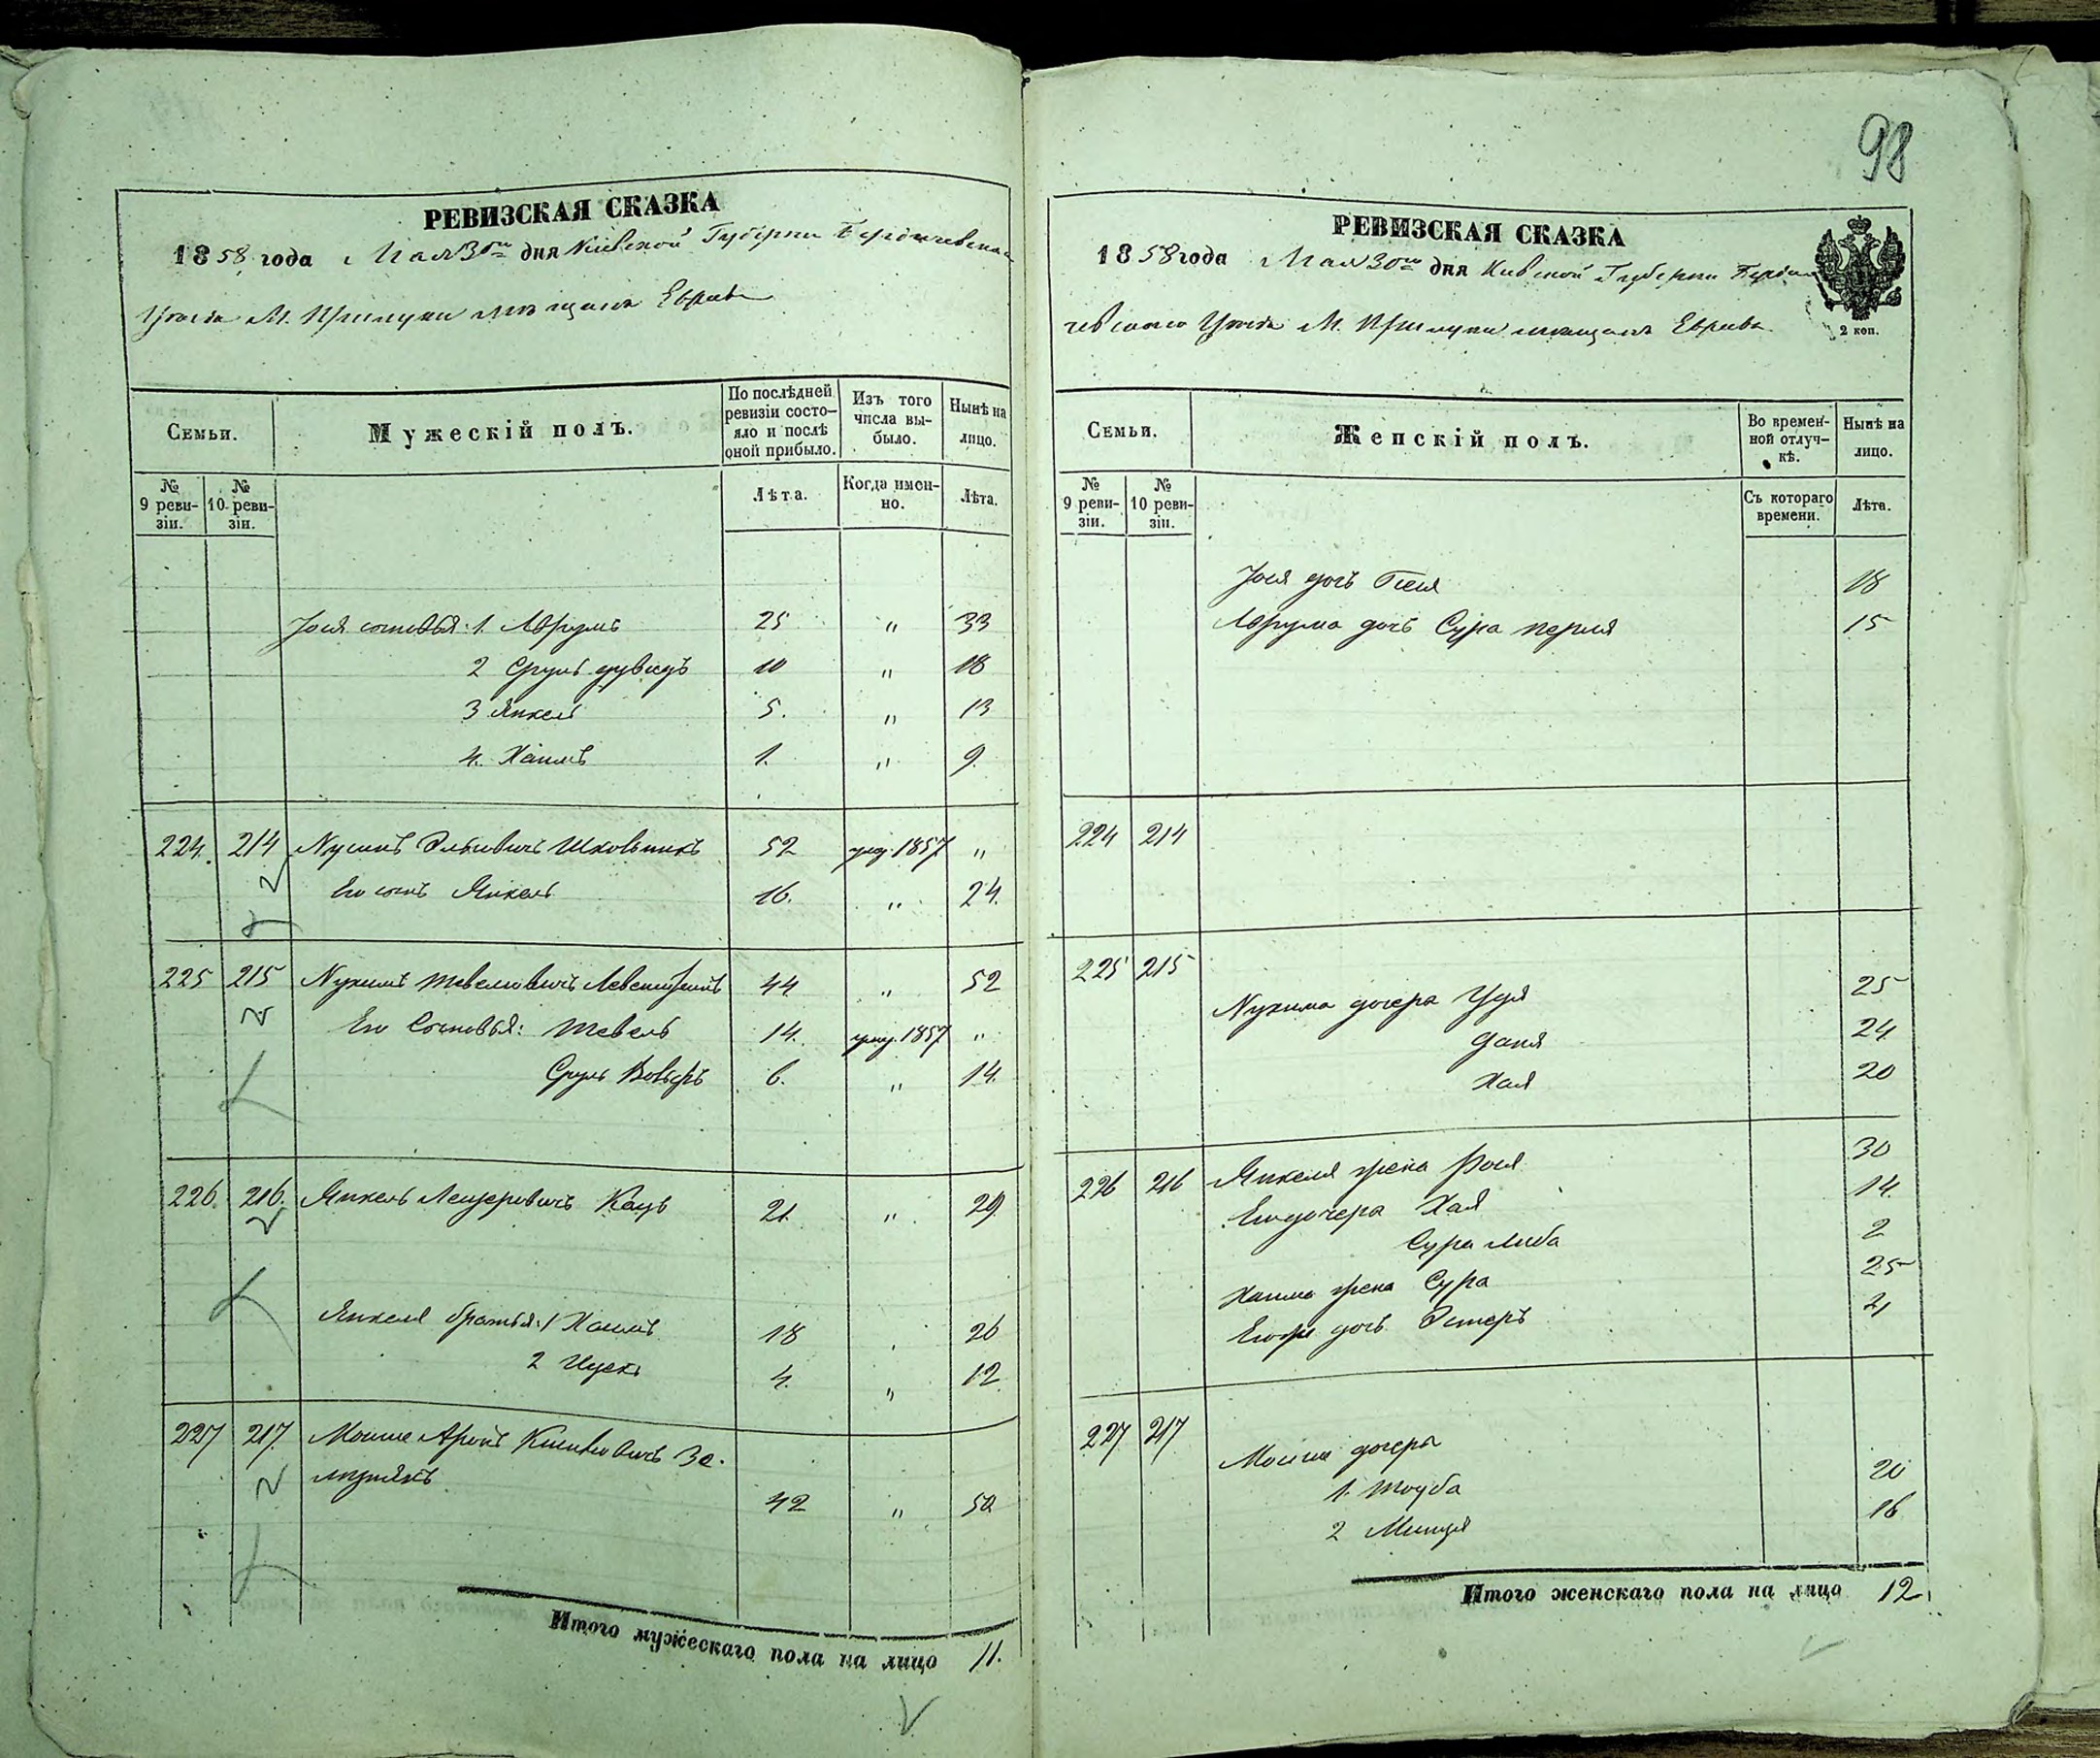 98
РЕВИЗСКАЯ СКАЗКА
1858 года Мая 30го дня Киевской Губернии Бердичевскаго
Уѣзда М. Прилуки мѣщанъ Евреевъ
Семьи.
Мужескій полъ.
По послѣдней ревизіи состояло и послѣ оной прибыло.
Изъ того числа выбыло.
Нынѣ на лицо.
№ 9 ревизіи.
№ 10 ревизіи.
Лѣта.
Когда именно.
Лѣта.
Іося сыновья: 1. Аврумъ 25 " 33
2 Сруль дувидъ 10 " 18
3 Янкель 5. " 13
4. Хаимъ 1. " 9.
224. 214 Нусинъ Школьникъ 52 1857 "
Его сынъ Янкель 16. " 24.
225 215 Нухимъ Тевелювичъ 44 " 52
Его Сыновья: Тевель 14. 1857 "
Сруль 6. " 14.
226. 216. Янкель Лейзеровичъ Кацъ 21. " 29
Янкеля братья: 1 Хаимъ 18 " 26
2 4. " 12
227 217. Мошие Аронъ
42 " 50
Итого мужескаго пола на лицо 11.
РЕВИЗСКАЯ СКАЗКА
1858 года Мая 30го дня Киевской Губернии Берди
чевскаго Уѣзда М. Прилуки мѣщанъ Евреевъ
2 коп.
Семьи.
Женскій полъ.
Во временной отлучкѣ.
Нынѣ на лицо.
№ 9 ревизіи.
№ 10 ревизіи.
Съ котораго времени.
Лѣта.
Іося дочь 18
Аврума дочь Сура перля 15
224 214
225 215
Нухима дочера Удя 25
24
Хая 20
226 216 Янкеля жена 30
Его дочера Хая 14.
Сура Либа 2
Хаима жена Сура 25
Его же дочь Эстеръ 2
227 217
Мошие дочера
1. Тауба 20
2 16
Итого женскаго пола на лицо 12.